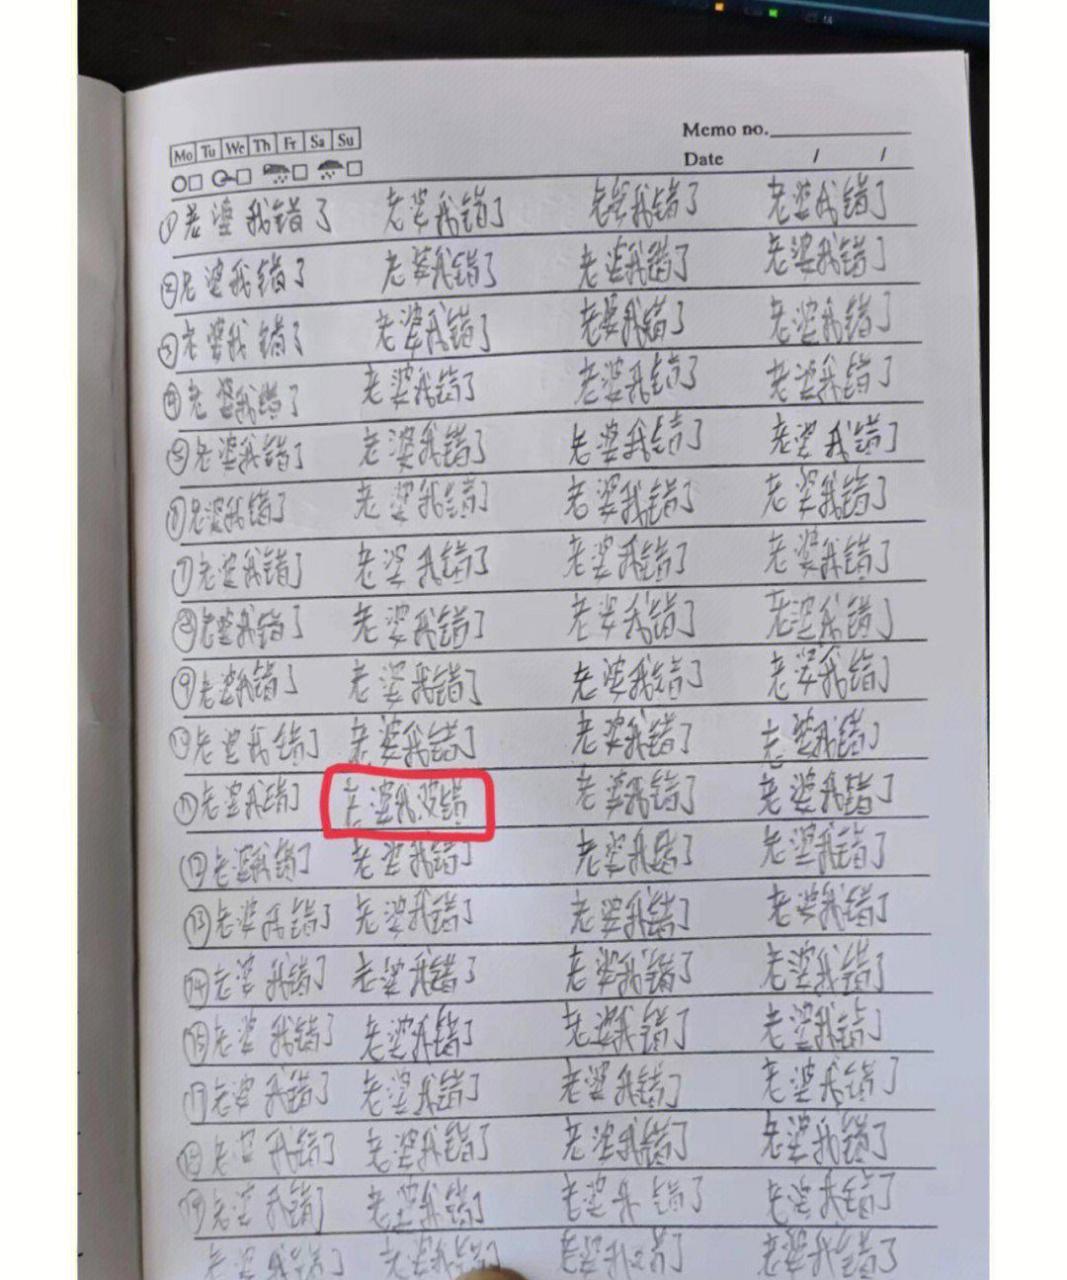 Memo no.
Mo Tu We Th Fr Sa Su
Date / /
① 老婆我错了 老婆我错了 老婆我错了 老婆我错了
② 老婆我错了 老婆我错了 老婆我错了 老婆我错了
③ 老婆我错了 老婆我错了 老婆我错了 老婆我错了
④ 老婆我错了 老婆我错了 老婆我错了 老婆我错了
⑤ 老婆我错了 老婆我错了 老婆我错了 老婆我错了
老婆我错了 老婆我错了 老婆我错了 老婆我错了
⑦ 老婆我错了 老婆我错了 老婆我错了 老婆我错了
⑧ 老婆我错了 老婆我错了 老婆我错了 老婆我错了
⑨ 老婆我错了 老婆我错了 老婆我错了 老婆我错了
⑩ 老婆我错了 老婆我错了 老婆我错了 老婆我错了
⑪ 老婆我错了 老婆我没错 老婆我错了 老婆我错了
⑫ 老婆我错了 老婆我错了 老婆我错了 老婆我错了
⑬ 老婆我错了 老婆我错了 老婆我错了 老婆我错了
⑭ 老婆我错了 老婆我错了 老婆我错了 老婆我错了
⑮ 老婆我错了 老婆我错了 老婆我错了 老婆我错了
⑰ 老婆我错了 老婆我错了 老婆我错了 老婆我错了
老婆我错了 老婆我错了 老婆我错了 老婆我错了
⑲ 老婆我错了 老婆我错了 老婆我错了 老婆我错了
老婆我错了 老婆我错了 老婆我错了 老婆我错了